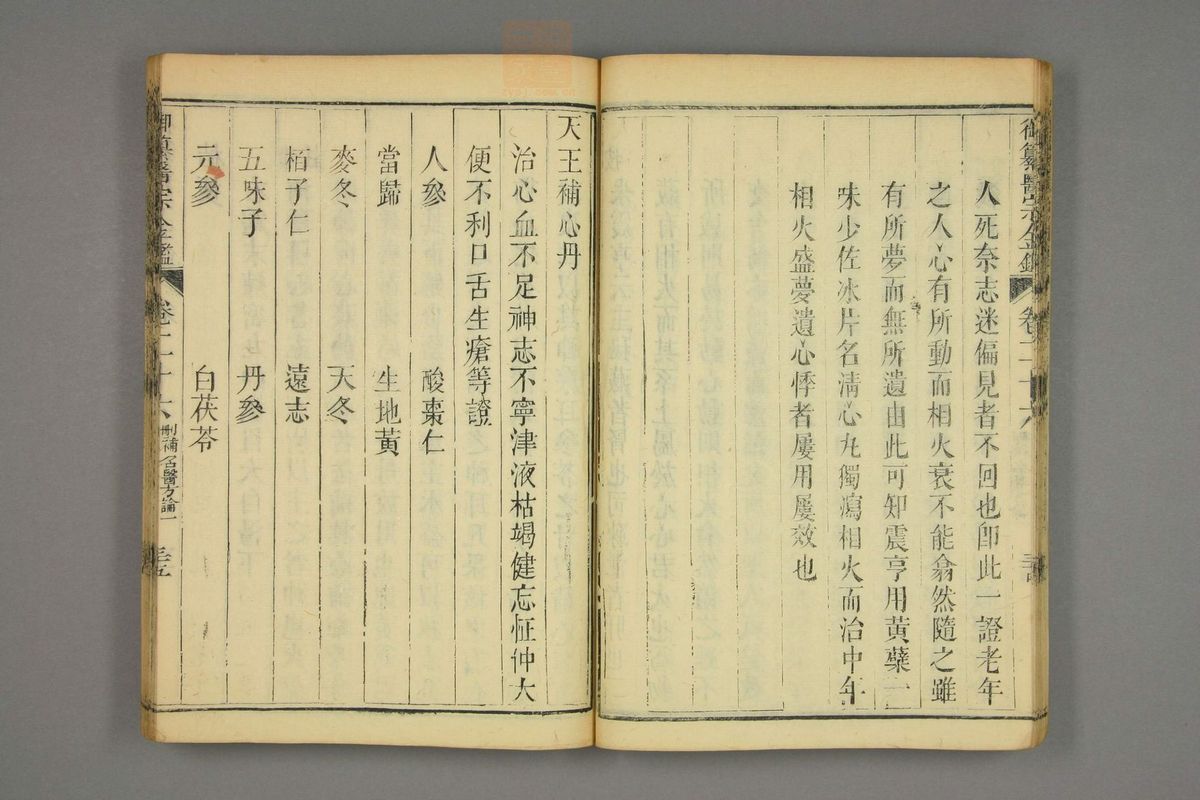 御纂醫宗金鑑 卷二十六
人死奈志迷偏見者不回也卽此一證老年
之人心有所動而相火衰不能翕然隨之雖
有所夢而無所遺由此可知震亨用黃蘗一
味少佐冰片名清心丸獨瀉相火而治中年
相火盛夢遺心悸者屢用屢效也
天王補心丹
治心血不足神志不寧津液枯竭健忘怔忡大
便不利口舌生瘡等證
人參 酸棗仁
當歸 生地黃
麥冬 天冬
栢子仁 遠志
五味子 丹參
元參 白茯苓
御纂醫宗金鑑 卷二十六 刪補名醫方論一 三五